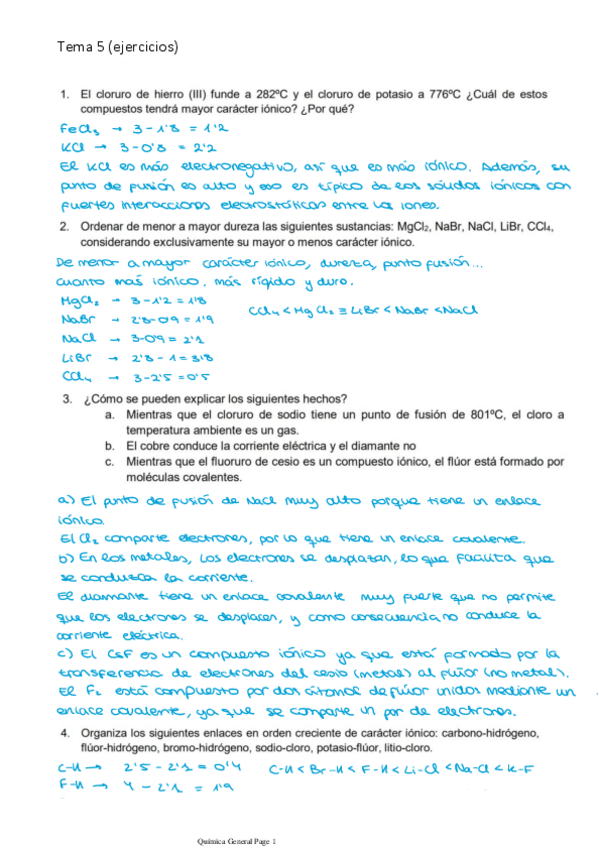 Tema 5 (ejercicios)
1. El cloruro de hierro (III) funde a 282ºC y el cloruro de potasio a 776ºC ¿Cuál de estos
compuestos tendrá mayor carácter iónico? ¿Por qué?
FeCl₃ → 3 - 1'8 = 1'2
KCl → 3 - 0'8 = 2'2
El KCl es más electronegativo, así que es más iónico. Además, su
punto de fusión es alto y eso es típico de los sólidos iónicos con
fuertes interacciones electrostáticas entre la iones.
2. Ordenar de menor a mayor dureza las siguientes sustancias: MgCl₂, NaBr, NaCl, LiBr, CCl₄,
considerando exclusivamente su mayor o menos carácter iónico.
De menor a mayor carácter iónico, dureza, punto fusión...
cuanto más iónico, más rígido y duro.
MgCl₂ → 3 - 1'2 = 1'8
NaBr → 2'8 - 0'9 = 1'9
NaCl → 3 - 0'9 = 2'1
LiBr → 2'8 - 1 = 3'8
CCl₄ → 3 - 2'5 = 0'5
CCl₄ < MgCl₂ ≡ LiBr < NaBr < NaCl
3. ¿Cómo se pueden explicar los siguientes hechos?
a. Mientras que el cloruro de sodio tiene un punto de fusión de 801ºC, el cloro a
temperatura ambiente es un gas.
b. El cobre conduce la corriente eléctrica y el diamante no
c. Mientras que el fluoruro de cesio es un compuesto iónico, el flúor está formado por
moléculas covalentes.
a) El punto de fusión de NaCl muy alto porque tiene un enlace
iónico.
El Cl₂ comparte electrones, por lo que tiene un enlace covalente.
b) En los metales, los electrones se desplazan, lo que facilita que
se conduzca la corriente.
El diamante tiene un enlace covalente muy fuerte que no permite
que los electrones se desplacen, y como consecuencia no conduce la
corriente eléctrica.
c) El CsF es un compuesto iónico ya que está formado por la
transferencia de electrones del cesio (metal) al flúor (no metal).
El F₂ está compuesto por dos átomos de flúor unidos mediante un
enlace covalente, ya que se comparte un par de electrones.
4. Organiza los siguientes enlaces en orden creciente de carácter iónico: carbono-hidrógeno,
flúor-hidrógeno, bromo-hidrógeno, sodio-cloro, potasio-flúor, litio-cloro.
C-H → 2'5 - 2'1 = 0'4
C-H < Br-H < F-H < Li-Cl < Na-Cl < K-F
F-H → 4 - 2'1 = 1'9
Química General Page 1